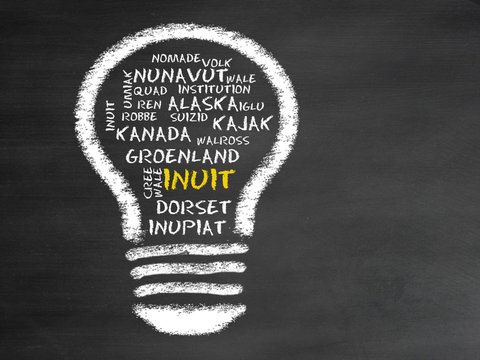 NOMADE VOLK
NUNAVUT WALE
UMIAK QUAD INSTITUTION
INUIT REN ALASKA IGLU
ROBBE SUIZID KAJAK
KANADA WALROSS
GROENLAND
CREE WALE INUIT
DORSET
INUPIAT